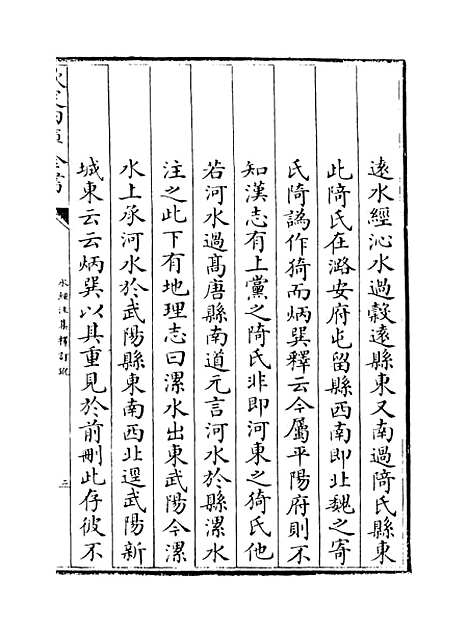 遠水經沁水過穀遠縣東又南過陭氏縣東
此陭氏在潞安府屯留縣西南即北魏之寄
氏陭譌作猗而炳巽釋云今屬平陽府則不
知漢志有上黨之陭氏非即河東之猗氏他
若河水過髙唐縣南道元言河水於縣漯水
注之此下有地理志曰漯水出東武陽今漯
水上承河水於武陽縣東南西北逕武陽新
城東云云炳巽以具重見於前刪此存彼不
水經注集釋訂訛
三